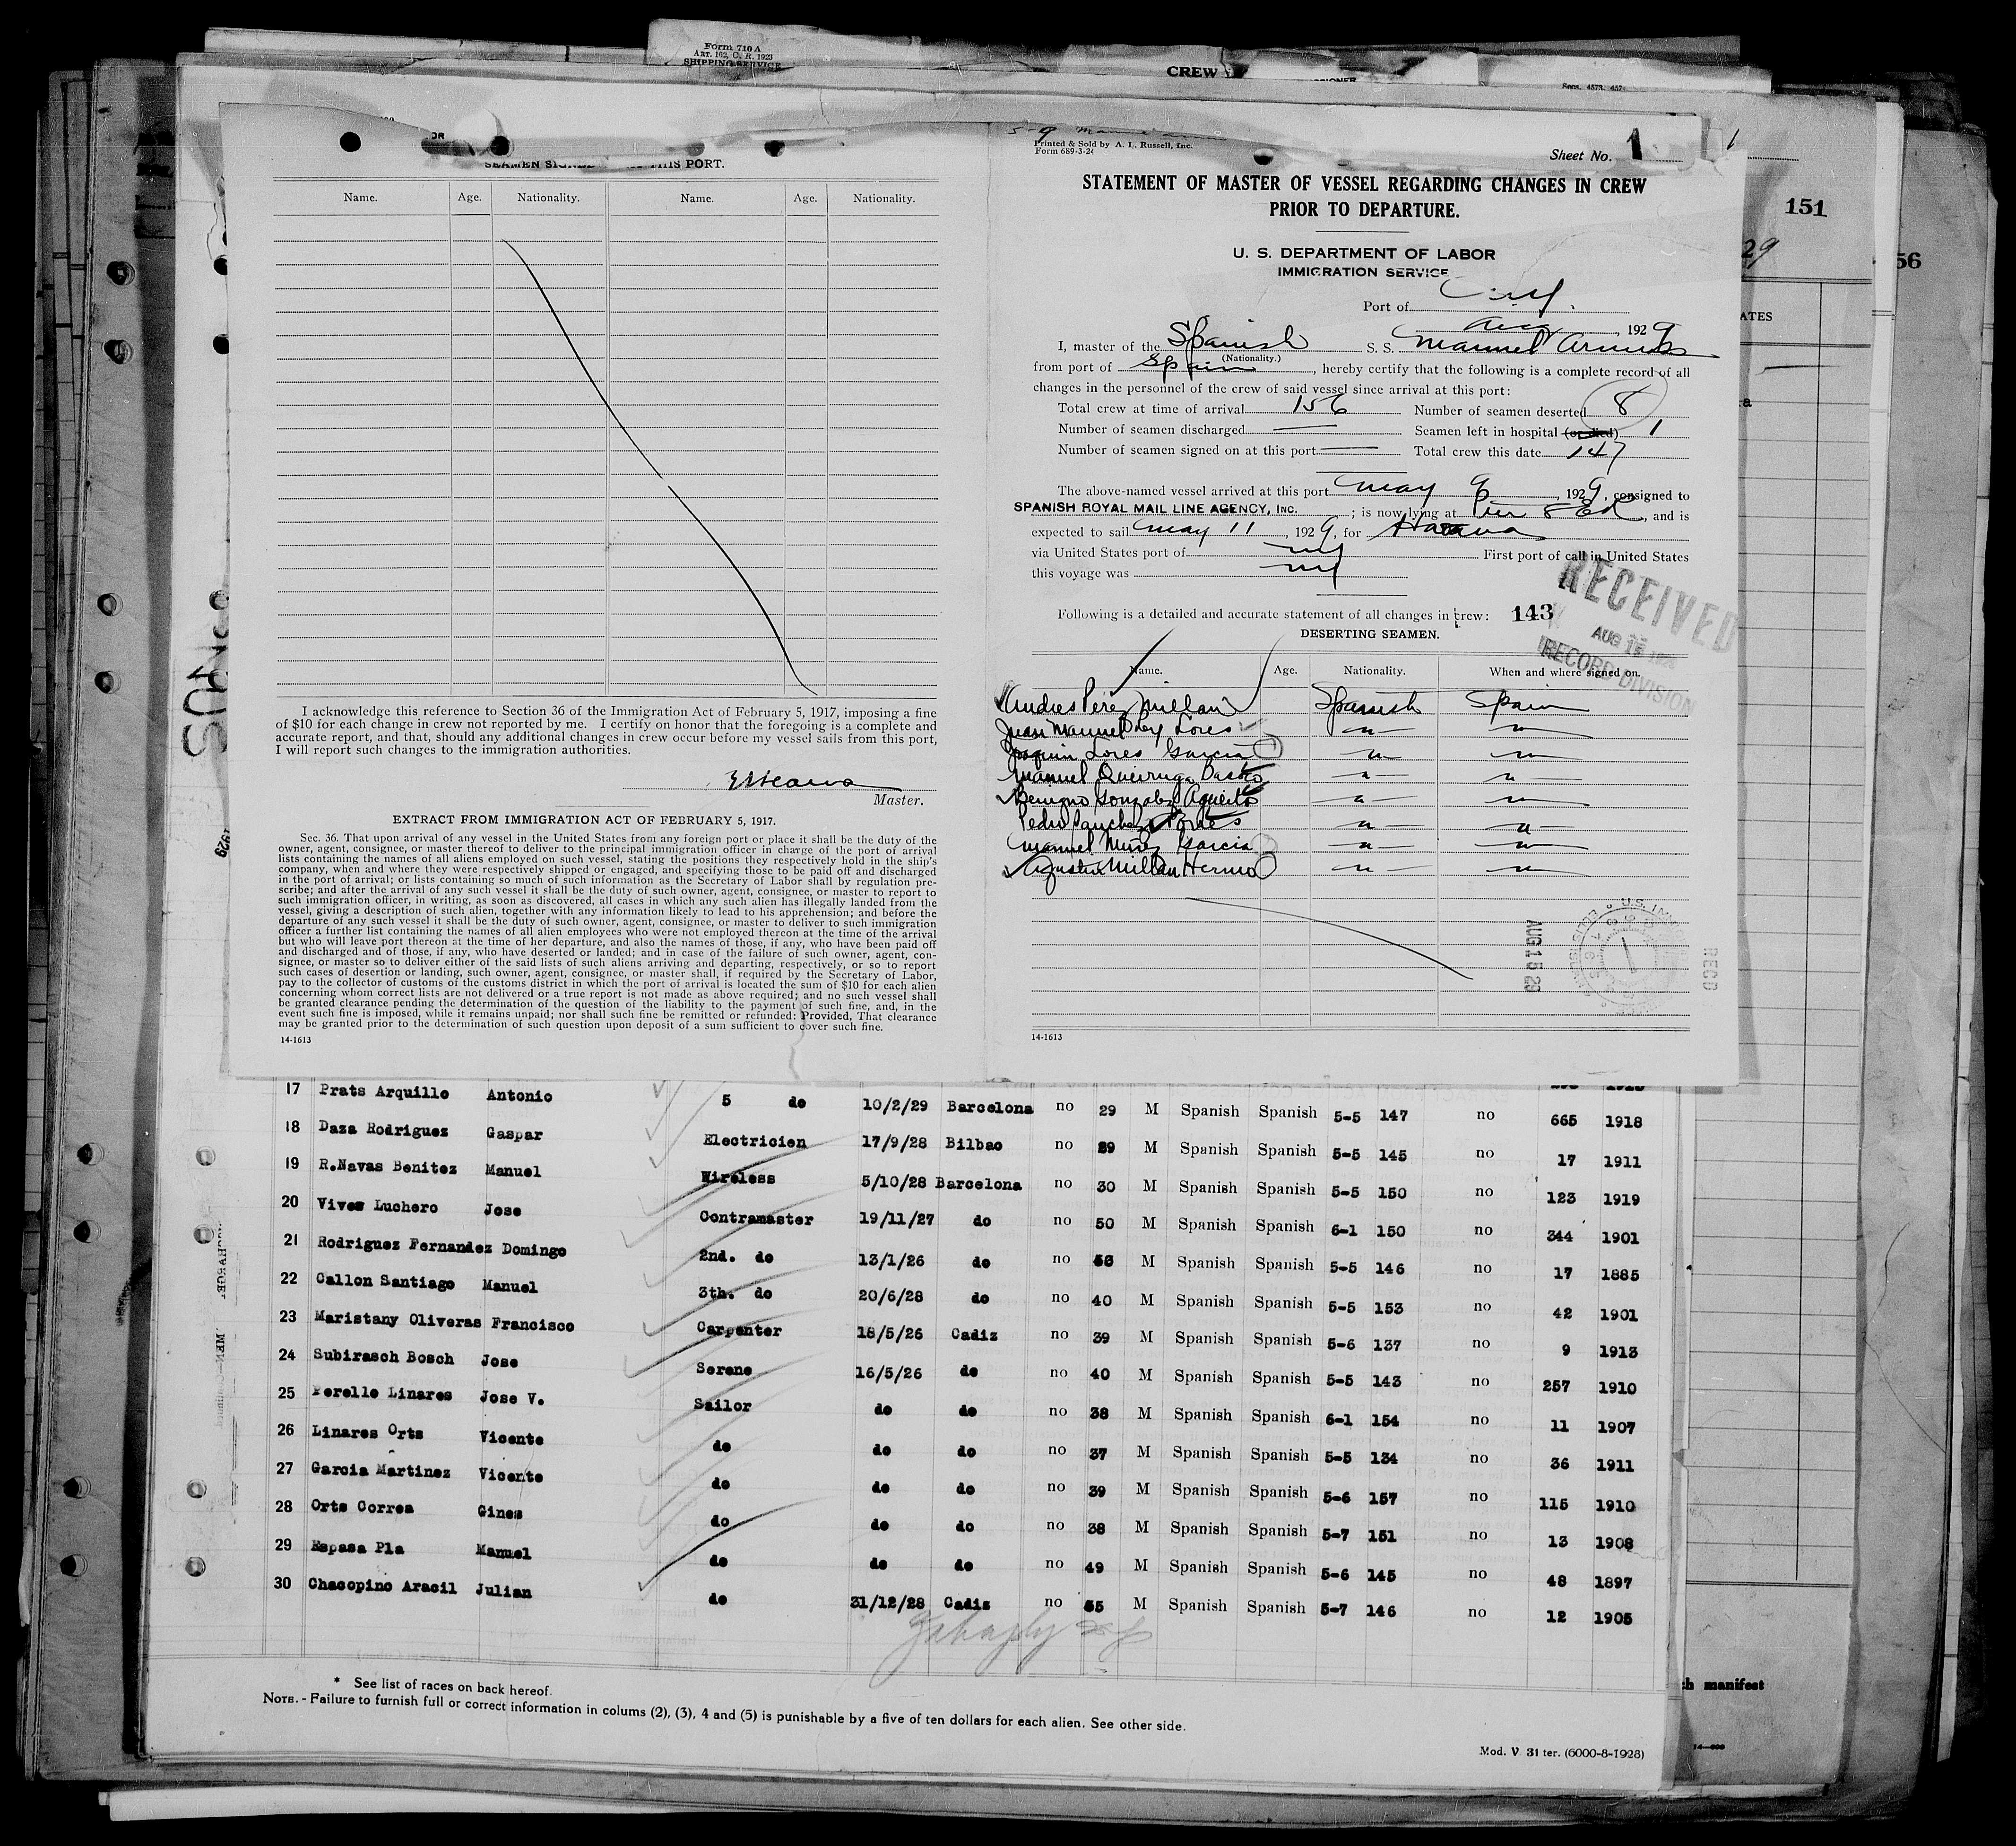 Form 710 A
Art. 162, C. R. 1923
SHIPPING SERVICE
CREW
Secs. 4573, 457
151
29
56
ATES
SEAMEN SIGNED THIS PORT.
Name. Age. Nationality. Name. Age. Nationality.
I acknowledge this reference to Section 36 of the Immigration Act of February 5, 1917, imposing a fine
of $10 for each change in crew not reported by me. I certify on honor that the foregoing is a complete and
accurate report, and that, should any additional changes in crew occur before my vessel sails from this port,
I will report such changes to the immigration authorities.
Master.
EXTRACT FROM IMMIGRATION ACT OF FEBRUARY 5, 1917.
Sec. 36. That upon arrival of any vessel in the United States from any foreign port or place it shall be the duty of the
owner, agent, consignee, or master thereof to deliver to the principal immigration officer in charge of the port of arrival
lists containing the names of all aliens employed on such vessel, stating the positions they respectively hold in the ship's
company, when and where they were respectively shipped or engaged, and specifying those to be paid off and discharged
in the port of arrival; or lists containing so much of such information as the Secretary of Labor shall by regulation pre-
scribe; and after the arrival of any such vessel it shall be the duty of such owner, agent, consignee, or master to report to
such immigration officer, in writing, as soon as discovered, all cases in which any such alien has illegally landed from the
vessel, giving a description of such alien, together with any information likely to lead to his apprehension; and before the
departure of any such vessel it shall be the duty of such owner, agent, consignee, or master to deliver to such immigration
officer a further list containing the names of all alien employees who were not employed thereon at the time of the arrival
but who will leave port thereon at the time of her departure, and also the names of those, if any, who have been paid off
and discharged and of those, if any, who have deserted or landed; and in case of the failure of such owner, agent, con-
signee, or master so to deliver either of the said lists of such aliens arriving and departing, respectively, or so to report
such cases of desertion or landing, such owner, agent, consignee, or master shall, if required by the Secretary of Labor,
pay to the collector of customs of the customs district in which the port of arrival is located the sum of $10 for each alien
concerning whom correct lists are not delivered or a true report is not made as above required; and no such vessel shall
be granted clearance pending the determination of the question of the liability to the payment of such fine, and, in the
event such fine is imposed, while it remains unpaid; nor shall such fine be remitted or refunded: Provided, That clearance
may be granted prior to the determination of such question upon deposit of a sum sufficient to cover such fine.
14-1613
Printed & Sold by A. L. Russell, Inc.
Form 689-3-24
Sheet No. 1
STATEMENT OF MASTER OF VESSEL REGARDING CHANGES IN CREW
PRIOR TO DEPARTURE.
U. S. DEPARTMENT OF LABOR
IMMIGRATION SERVICE
Port of
, 1929
I, master of the Spanish S. S. Manuel Arnus
(Nationality.)
from port of Spain, hereby certify that the following is a complete record of all
changes in the personnel of the crew of said vessel since arrival at this port:
Total crew at time of arrival 156 Number of seamen deserted 8
Number of seamen discharged — Seamen left in hospital (or died) 1
Number of seamen signed on at this port — Total crew this date 147
The above-named vessel arrived at this port May 9, 1929, consigned to
SPANISH ROYAL MAIL LINE AGENCY, INC. ; is now lying at Pier 8 ER, and is
expected to sail May 11, 1929, for Havana
via United States port of NY First port of call in United States
this voyage was NY
Following is a detailed and accurate statement of all changes in crew: 143
RECEIVED
AUG 15 1929
RECORD DIVISION
DESERTING SEAMEN.
Name. Age. Nationality. When and where signed on.
Andres Perez Millan Spanish Spain
Juan Manuel Rey Lores " "
Joaquin Lores Garcia " "
Manuel Queiruga Bastro " "
Benigno Gonzalez Agueito " "
Pedro Sanchez Portes " "
Manuel Muñez Garcia " "
Agustin Millan Hermo " "
AUG 15 29
RECD
14-1613
17 Prats Arquillo Antonio 5 do 10/2/29 Barcelona no 29 M Spanish Spanish 5-5 147 no 665 1918
18 Daza Rodriguez Gaspar Electricien 17/9/28 Bilbao no 29 M Spanish Spanish 5-5 145 no 17 1911
19 R.Navas Benitez Manuel Wireless 5/10/28 Barcelona no 30 M Spanish Spanish 5-5 150 no 123 1919
20 Vives Luchero Jose Contramaster 19/11/27 do no 50 M Spanish Spanish 6-1 150 no 344 1901
21 Rodriguez Fernandez Domingo 2nd. do 13/1/26 do no 56 M Spanish Spanish 5-5 146 no 17 1885
22 Callon Santiago Manuel 3th. do 20/6/28 do no 40 M Spanish Spanish 5-5 153 no 42 1901
23 Maristany Oliveras Francisco Carpenter 18/5/26 Cadiz no 39 M Spanish Spanish 5-6 137 no 9 1913
24 Subirasch Bosch Jose Serene 16/5/26 do no 40 M Spanish Spanish 5-5 143 no 257 1910
25 Perelle Linares Jose V. Sailor do do no 38 M Spanish Spanish 6-1 154 no 11 1907
26 Linares Orts Vicente do do do no 37 M Spanish Spanish 5-5 134 no 36 1911
27 Garcia Martinez Vicente do do do no 39 M Spanish Spanish 5-6 157 no 115 1910
28 Orts Correa Gines do do do no 38 M Spanish Spanish 5-7 151 no 13 1908
29 Espasa Pla Manuel do do do no 49 M Spanish Spanish 5-6 145 no 48 1897
30 Chacopino Aracil Julian do 31/12/28 Cadiz no 55 M Spanish Spanish 5-7 146 no 12 1905
* See list of races on back hereof.
NOTE. - Failure to furnish full or correct information in colums (2), (3), 4 and (5) is punishable by a five of ten dollars for each alien. See other side.
Mod. V 31 ter. (6000-8-1928)
manifest